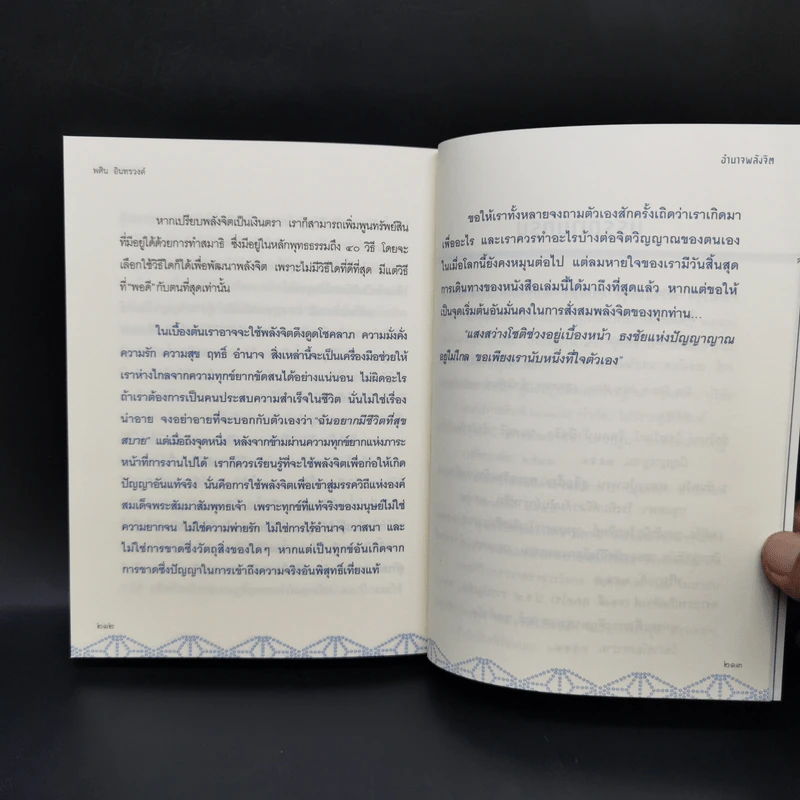 พศิน อินทรวงค์
หากเปรียบพลังจิตเป็นเงินตรา เราก็สามารถเพิ่มพูนทรัพย์สิน
ที่มีอยู่ได้ด้วยการทำสมาธิ ซึ่งมีอยู่ในหลักพุทธธรรมถึง ๔๐ วิธี โดยจะ
เลือกใช้วิธีใดก็ได้เพื่อพัฒนาพลังจิต เพราะไม่มีวิธีใดที่ดีที่สุด มีแต่วิธี
ที่“พอดี”กับตนที่สุดเท่านั้น
ในเบื้องต้นเราอาจจะใช้พลังจิตดึงดูดโชคลาภ ความมั่งคั่ง
ความรัก ความสุข ฤทธิ์ อำนาจ สิ่งเหล่านี้จะเป็นเครื่องมือช่วยให้
เราห่างไกลจากความทุกข์ยากขัดสนได้อย่างแน่นอน ไม่ผิดอะไร
ถ้าเราต้องการเป็นคนประสบความสำเร็จในชีวิต นั่นไม่ใช่เรื่อง
น่าอาย จงอย่าอายที่จะบอกกับตัวเองว่า “ฉันอยากมีชีวิตที่สุข
สบาย” แต่เมื่อถึงจุดหนึ่ง หลังจากข้ามผ่านความทุกข์ยากแห่งภาระ
หน้าที่การงานไปได้ เราก็ควรเรียนรู้ที่จะใช้พลังจิตเพื่อก่อให้เกิด
ปัญญาอันแท้จริง นั่นคือการใช้พลังจิตเพื่อเข้าสู่มรรควิถีแห่งองค์
สมเด็จพระสัมมาสัมพุทธเจ้า เพราะทุกข์ที่แท้จริงของมนุษย์ไม่ใช่
ความยากจน ไม่ใช่ความพ่ายรัก ไม่ใช่การไร้อำนาจ วาสนา และ
ไม่ใช่การขาดซึ่งวัตถุสิ่งของใดๆ หากแต่เป็นทุกข์อันเกิดจาก
การขาดซึ่งปัญญาในการเข้าถึงความจริงอันพิสุทธิ์เที่ยงแท้
๒๑๒
อำนาจพลังจิต
ขอให้เราทั้งหลายจงถามตัวเองสักครั้งเถิดว่าเราเกิดมา
เพื่ออะไร และเราควรทำอะไรบ้างต่อจิตวิญญาณของตนเอง
ในเมื่อโลกนี้ยังคงหมุนต่อไป แต่ลมหายใจของเรามีวันสิ้นสุด
การเดินทางของหนังสือเล่มนี้ได้มาถึงที่สุดแล้ว หากแต่ขอให้
เป็นจุดเริ่มต้นอันมั่นคงในการสั่งสมพลังจิตของทุกท่าน...
“แสงสว่างโชติช่วงอยู่เบื้องหน้า ธงชัยแห่งปัญญาญาณ
อยู่ไม่ไกล ขอเพียงเรานับหนึ่งที่ใจตัวเอง”
๒๑๓